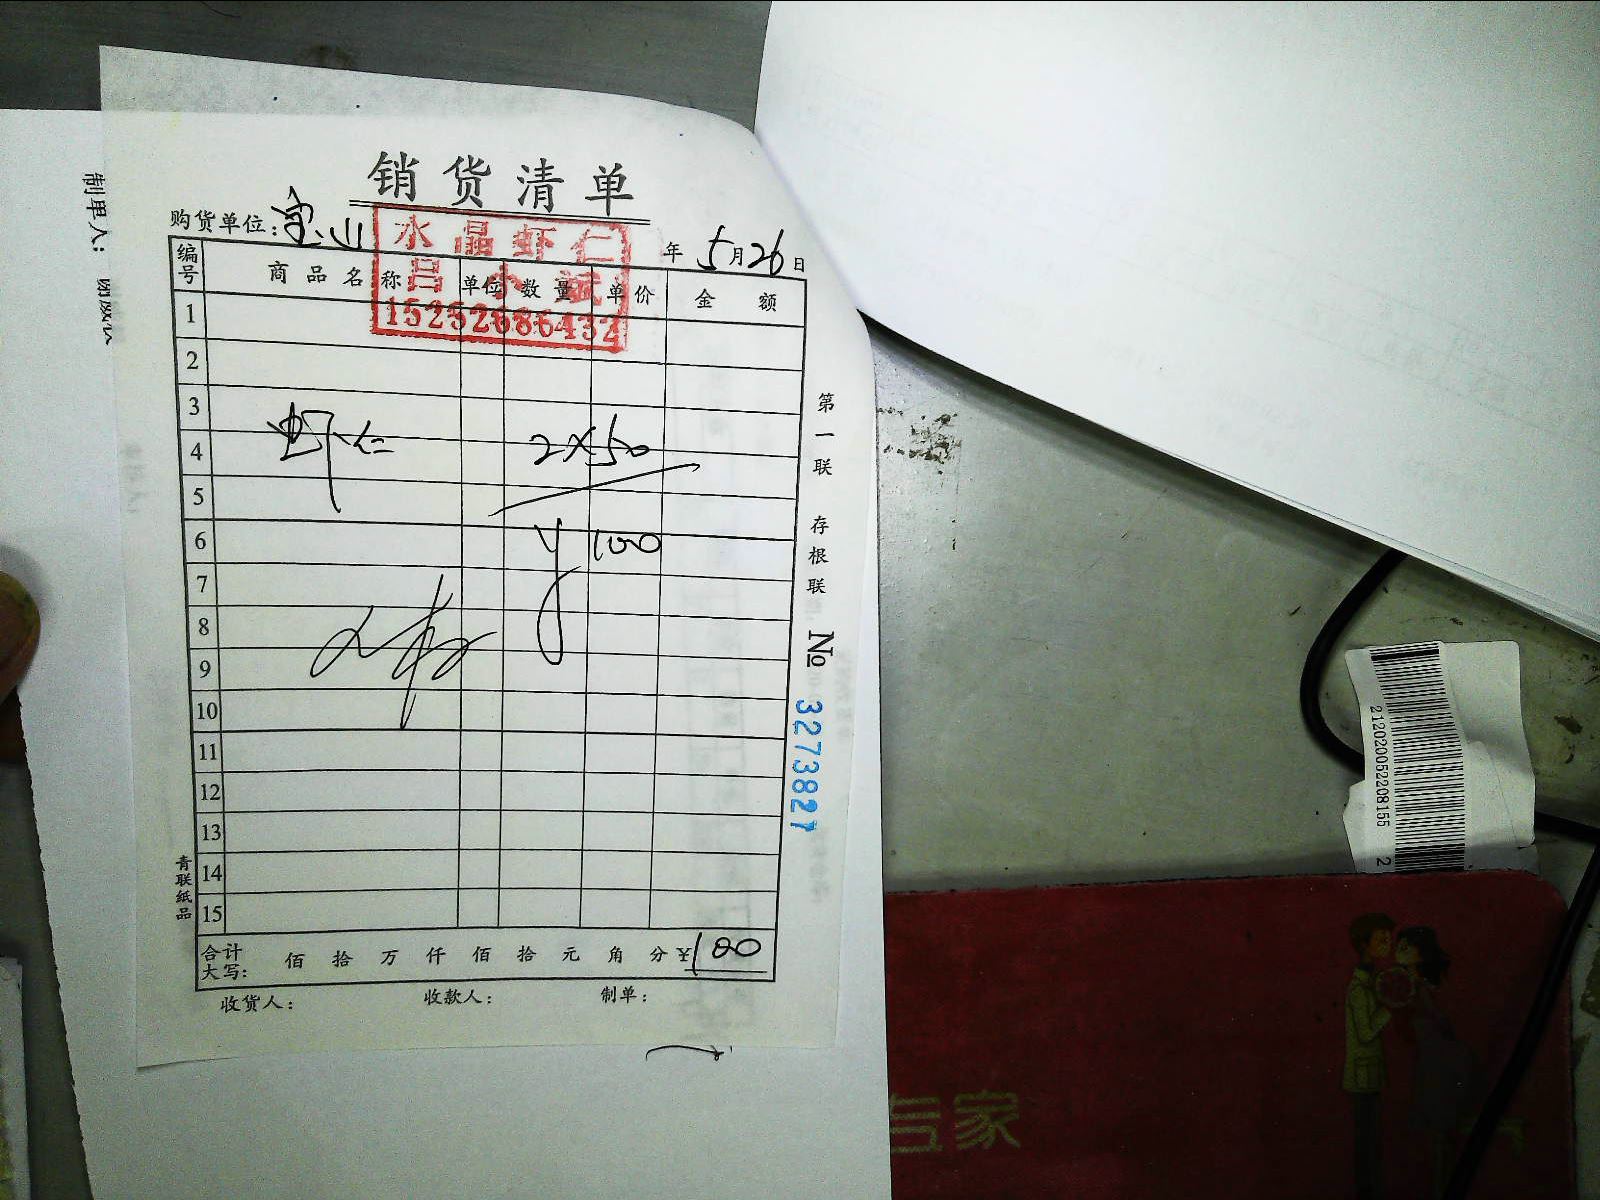 销货清单
购货单位：宝山
年 5月26日
水晶虾仁
吕小斌
15252686432
编号 商品名称 单位 数量 单价 金额
1
2
3
虾仁 2×50
4
5
6
¥100
7
8
9
10
11
12
13
14
15
合计大写： 佰 拾 万 仟 佰 拾 元 角 分 ¥100
收货人： 收款人： 制单：
第一联 存根联
№ 3273827
青联纸品
制单人：
2120200522081552
专家